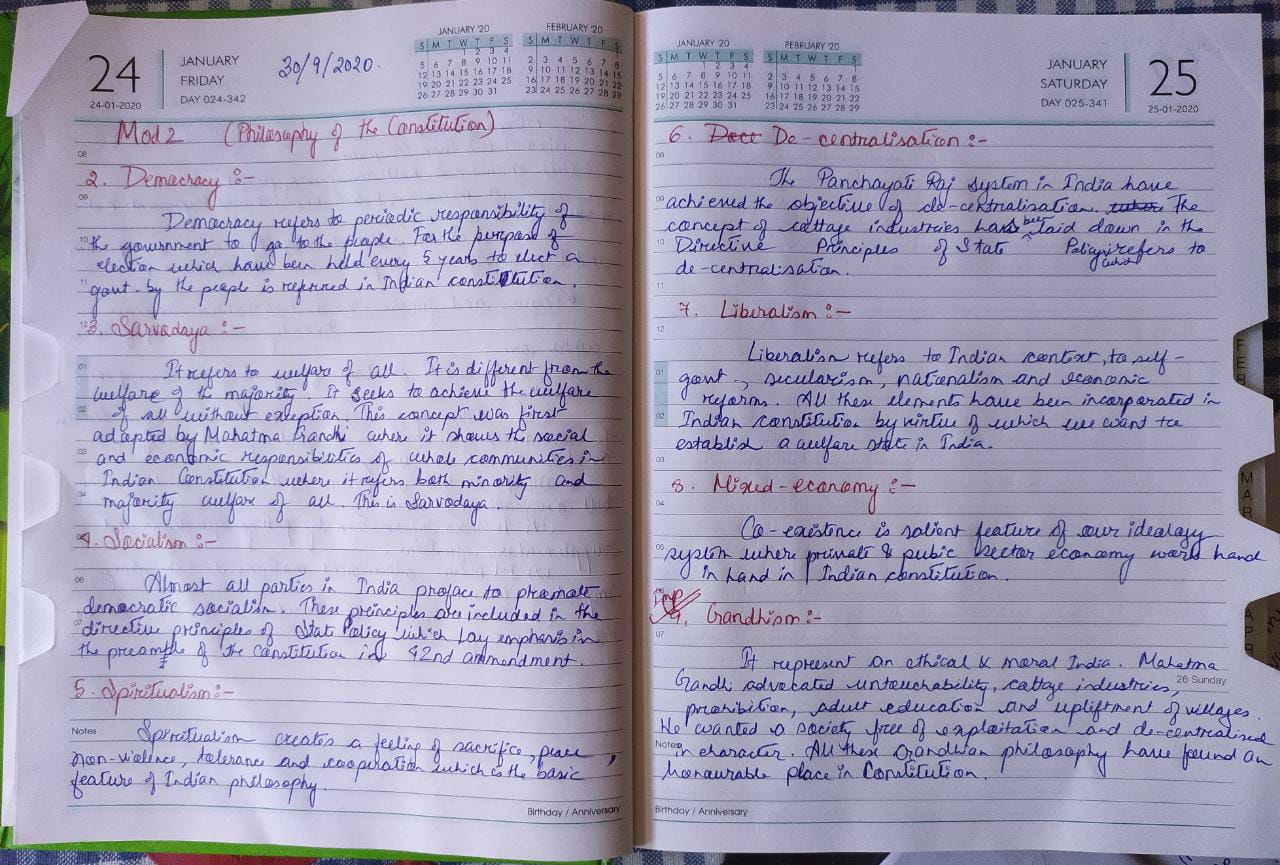 24
JANUARY
FRIDAY
DAY 024-342
24-01-2020
30/9/2020.
JANUARY '20
S M T W T F S
1 2 3 4
5 6 7 8 9 10 11
12 13 14 15 16 17 18
19 20 21 22 23 24 25
26 27 28 29 30 31
FEBRUARY '20
S M T W T F S
1
2 3 4 5 6 7 8
9 10 11 12 13 14 15
16 17 18 19 20 21 22
23 24 25 26 27 28 29
Mod 2 (Philosophy of the Constitution)
08
2. Democracy :-
09
Democracy refers to periodic responsibility of
10 the government to go to the people. For the purpose of
election which have been held every 5 years to elect a
11 govt. by the people is referred in Indian constitution.
12 3. Sarvadaya :-
01 It refers to welfare of all. It is different from the
welfare of the majority. It seeks to achieve the welfare
02 of all without exception. This concept was first
adapted by Mahatma Gandhi where it shows the social
03 and economic responsibilities of whole communities in
Indian Constitution where it refers both minority and
04 majority welfare of all. This is Sarvadaya.
05 4. Socialism :-
06 Almost all parties in India proface to promote
democratic socialism. These principles are included in the
07 directive principles of State Policy which lay emphasis in
the preamble of the Constitution in 42nd ammendment.
5. Spiritualism :-
Notes Spiritualism creates a feeling of sacrifice, peace,
non-violence, tolerance and cooperation which is the basic
feature of Indian philosophy.
Birthday / Anniversary
JANUARY '20
S M T W T F S
1 2 3 4
5 6 7 8 9 10 11
12 13 14 15 16 17 18
19 20 21 22 23 24 25
26 27 28 29 30 31
FEBRUARY '20
S M T W T F S
1
2 3 4 5 6 7 8
9 10 11 12 13 14 15
16 17 18 19 20 21 22
23 24 25 26 27 28 29
JANUARY
SATURDAY
DAY 025-341
25
25-01-2020
6. Dece De-centralisation :-
08
The Panchayati Raj system in India have
09 achieved the objective of de-centralisation. The
concept of cottage industries has been laid down in the
10 Directive Principles of State Policy which refers to
de-centralisation.
11
7. Liberalism :-
12
Liberalism refers to Indian context, to self-
01 govt, secularism, nationalism and economic
reforms. All these elements have been incorporated in
02 Indian constitution by virtue of which we want to
establish a welfare state in India.
03
8. Mixed-economy :-
04
Co-existence is salient feature of our idealogy
05 system where private & pubic sector economy work hand
in hand in Indian constitution.
Imp
9. Gandhism :-
07
It represent an ethical & moral India. Mahatma
Gandhi advocated untouchability, cottage industries,
26 Sunday
prohibition, adult education and upliftment of villages.
He wanted a society free of exploitation and de-centralised
Notes in character. All these Gandhian philosophy have found an
honourable place in Constitution.
Birthday / Anniversary
FEB
MAR
APR